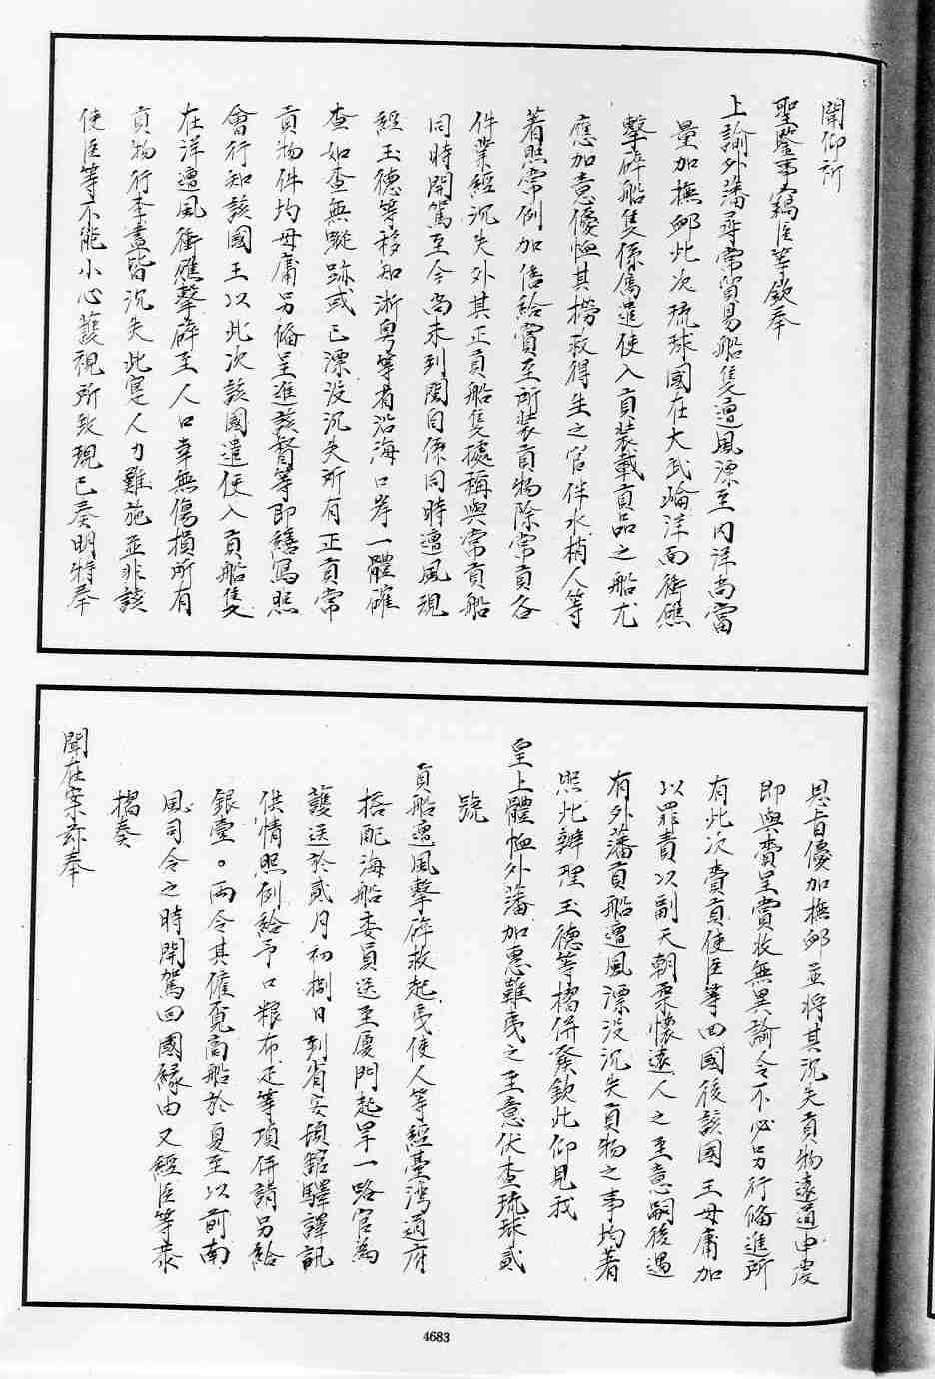 聞仰祈
聖鑒事竊臣等欽奉
上諭外藩尋常貿易船隻遭風漂至內洋尚當
量加撫卹此次琉球國在大武崙洋面衝礁
擊碎船隻係屬遣使入貢裝載貢品之船尤
應加意優恤其撈救得生之官伴水梢人等
著照常例加倍給賞至所裝貢物除常貢各
件業經沉失外其正貢船隻據稱與常貢船
同時開駕至今尚未到閩自係同時遭風現
經玉德等移知浙粵等省沿海口岸一體確
查如查無蹤跡或已漂沒沉失所有正貢常
貢物件均毋庸另備呈進該督等即繕寫照
會行知該國王以此次該國遣使入貢船隻
在洋遭風衝礁擊碎至人口幸無傷損所有
貢物行李盡皆沉失此寔人力難施並非該
使臣等不能小心護視所致現已奏明特奉
恩旨優加撫卹並將其沉失貢物遠道申虔
即與賫呈賞收無異諭令不必另行備進所
有此次賫貢使臣等回國後該國王毋庸加
以罪責以副天朝柔懷遠人之至意嗣後遇
有外藩貢船遭風漂沒沉失貢物之事均著
照此辦理玉德等摺併發欽此仰見我
皇上體恤外藩加惠難夷之至意伏查琉球貳
號
貢船遭風擊碎救起夷使人等經臺灣道府
搭配海船委員送至廈門起旱一路官為
護送於貳月初捌日到省安頓館驛譯訊
供情照例給予口粮布疋等項併請另給
銀壹〇兩令其僱覓商船於夏至以前南
風司令之時開駕回國緣由又經臣等恭
摺奏
聞在案茲奉
4683